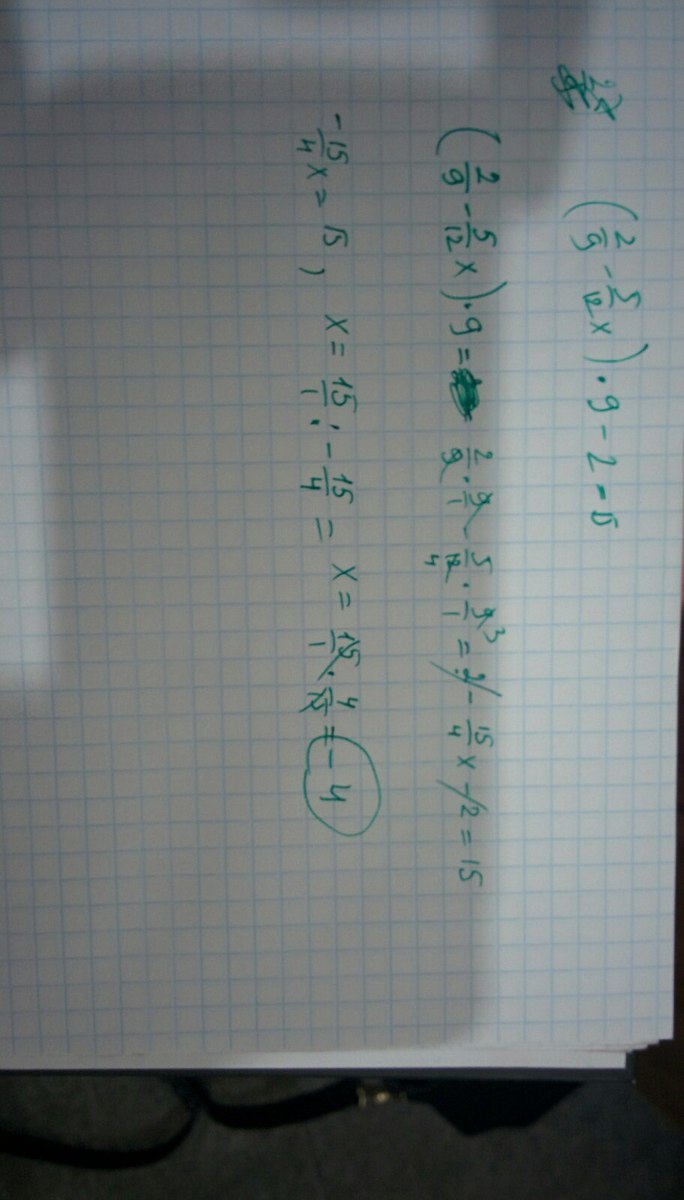 (2/9 - 5/12 x) · 9 - 2 = 15
(2/9 - 5/12 x) · 9 = 2/9 · 9/1 - 5/12 4 · 9/1 3 = 2 - 15/4 x - 2 = 15
- 15/4 x = 15, x = 15/1 : - 15/4 = x = 15/1 · 4/15 = - 4